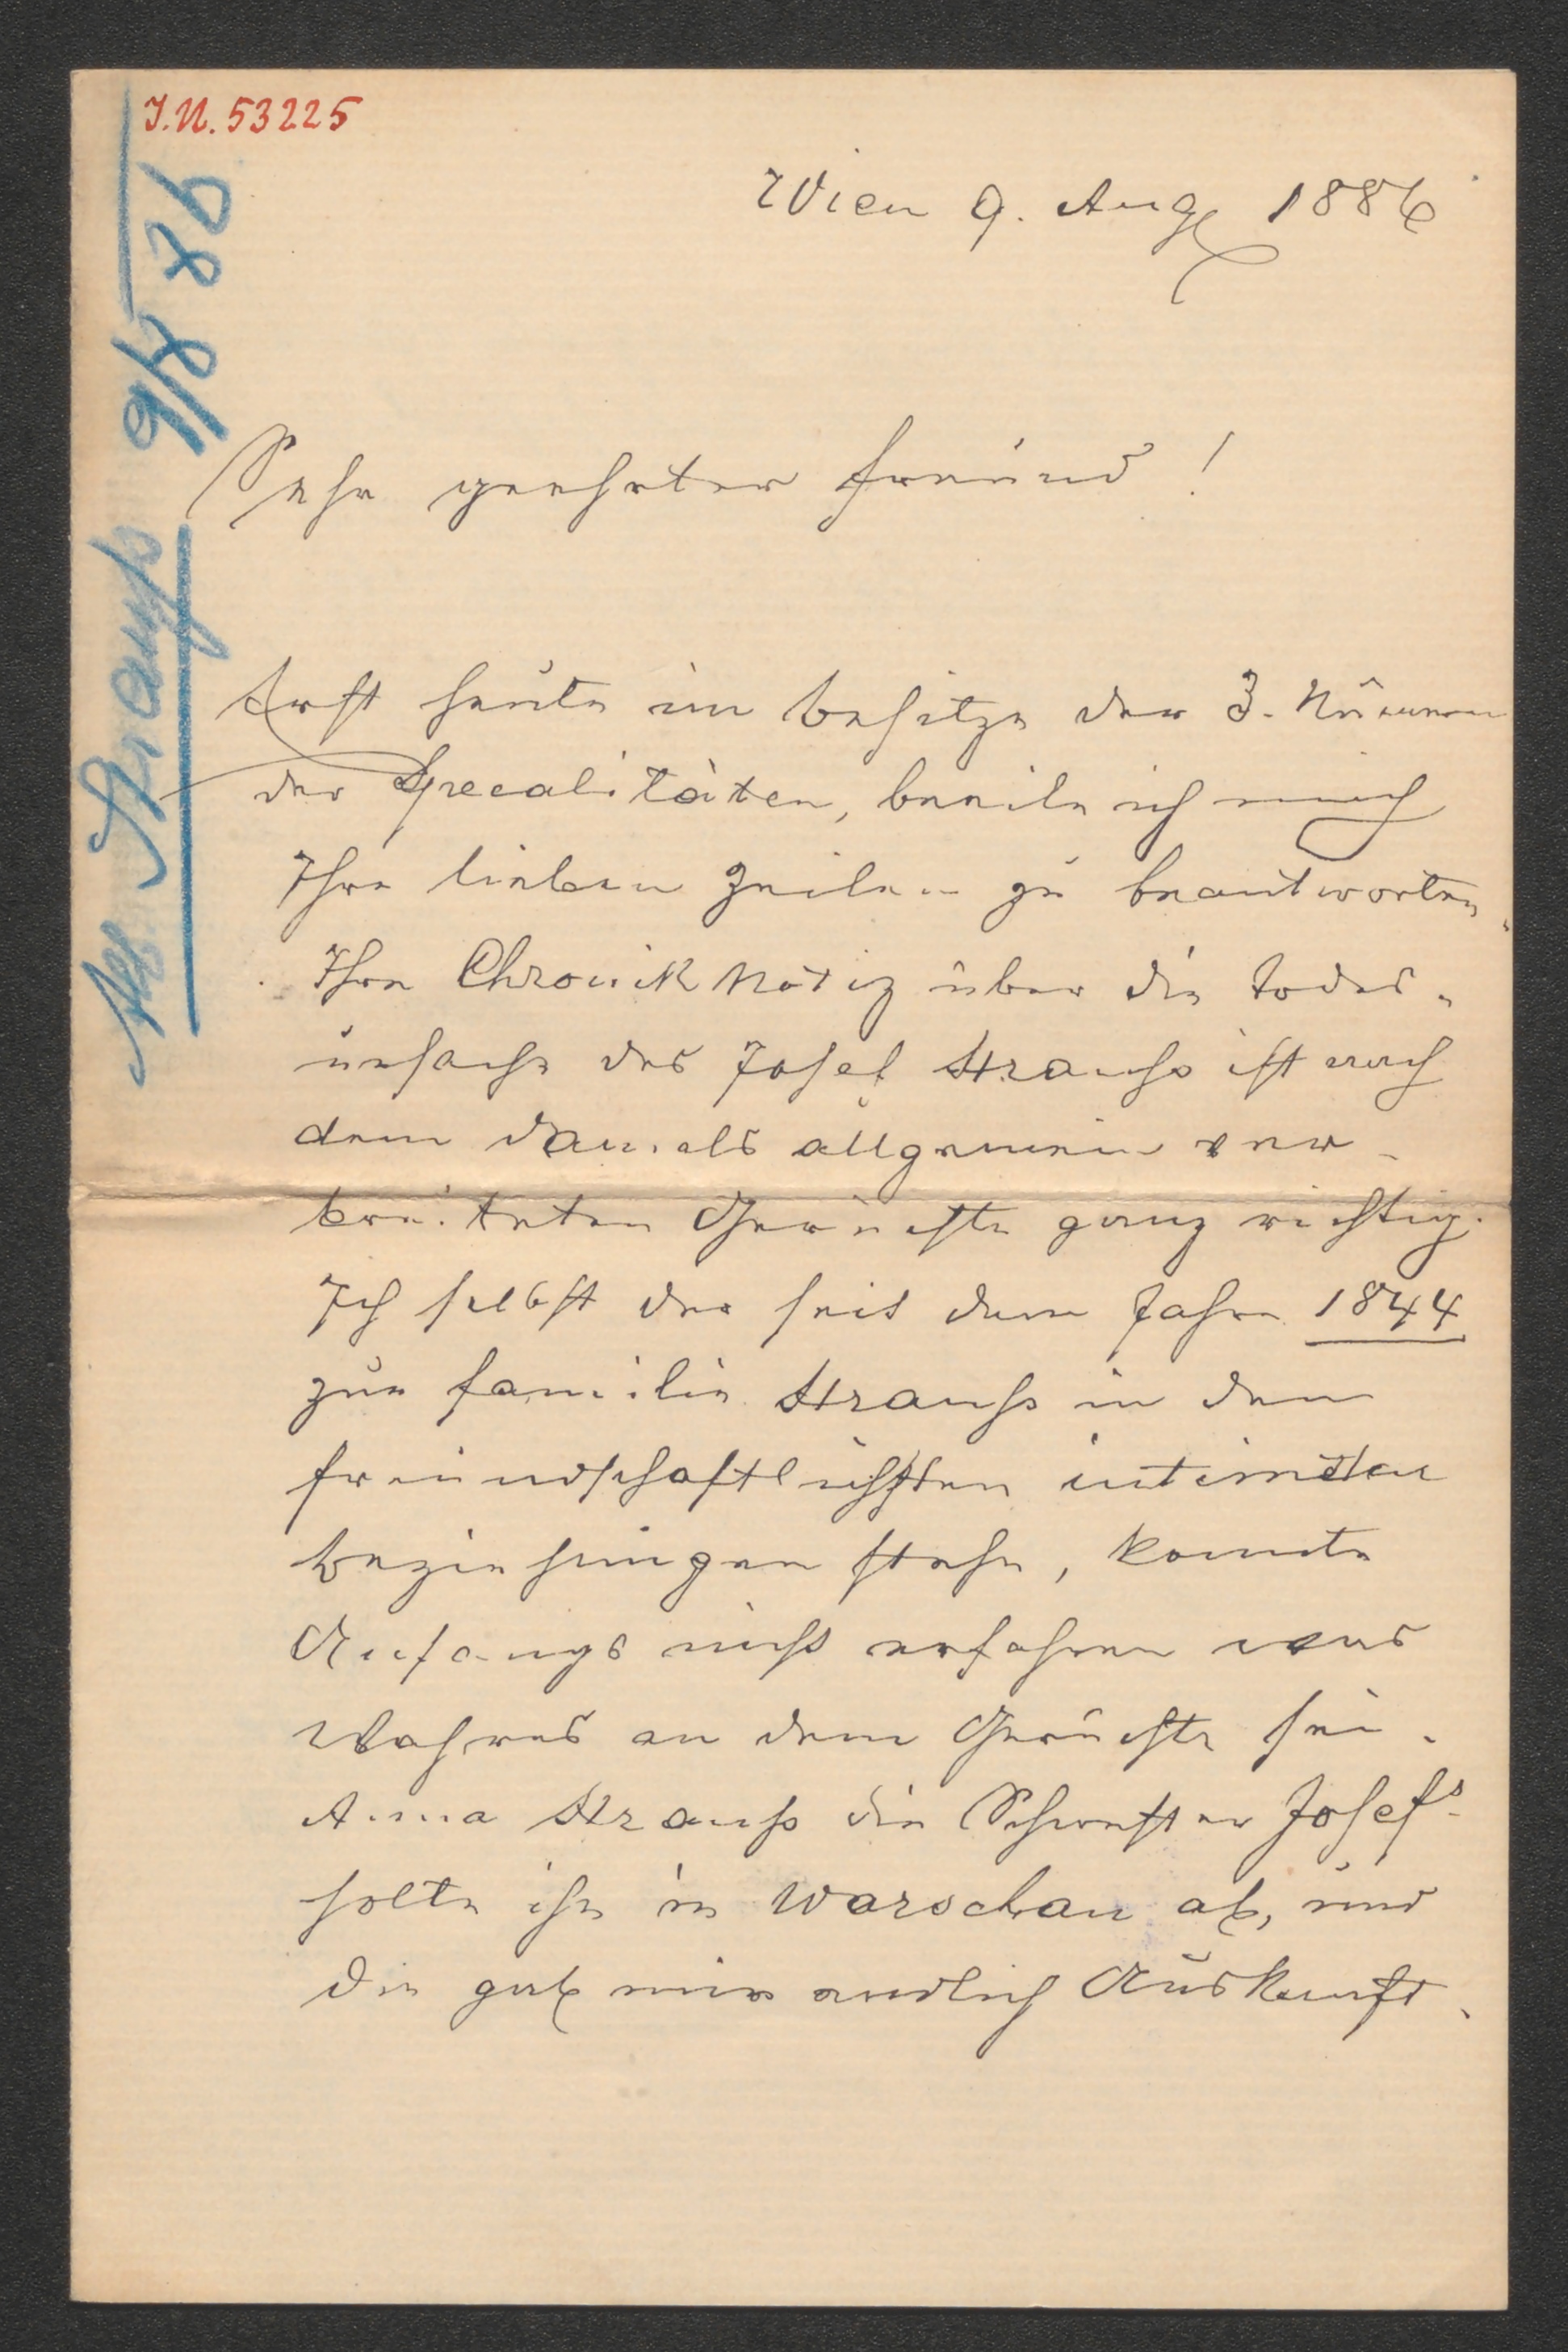 J.N. 53225
Wien 9. Aug 1886
9/8 86
Strauß
Sehr geehrter Freund!
Erst heute im Besitze der 3. Nummer
der Specalitäten, beeile ich mich
Ihre lieben Zeilen zu beantworten.
Ihre Chronik Notiz über die Todes-
ursache des Josef Strauss ist nach
dem damals allgemein ver-
breiteten Gerüchte ganz richtig.
Ich selbst der seit dem Jahre 1844
zur Familie Strauss in den
freundschaftlichsten intimsten
Beziehungen stehe, konnte
Anfangs nicht erfahren was
Wahres an dem Gerüchte sei.
Anna Strauss die Schwester Josefs
holte ihn in Warschau ab, und
die gab mir endlich Auskunft.